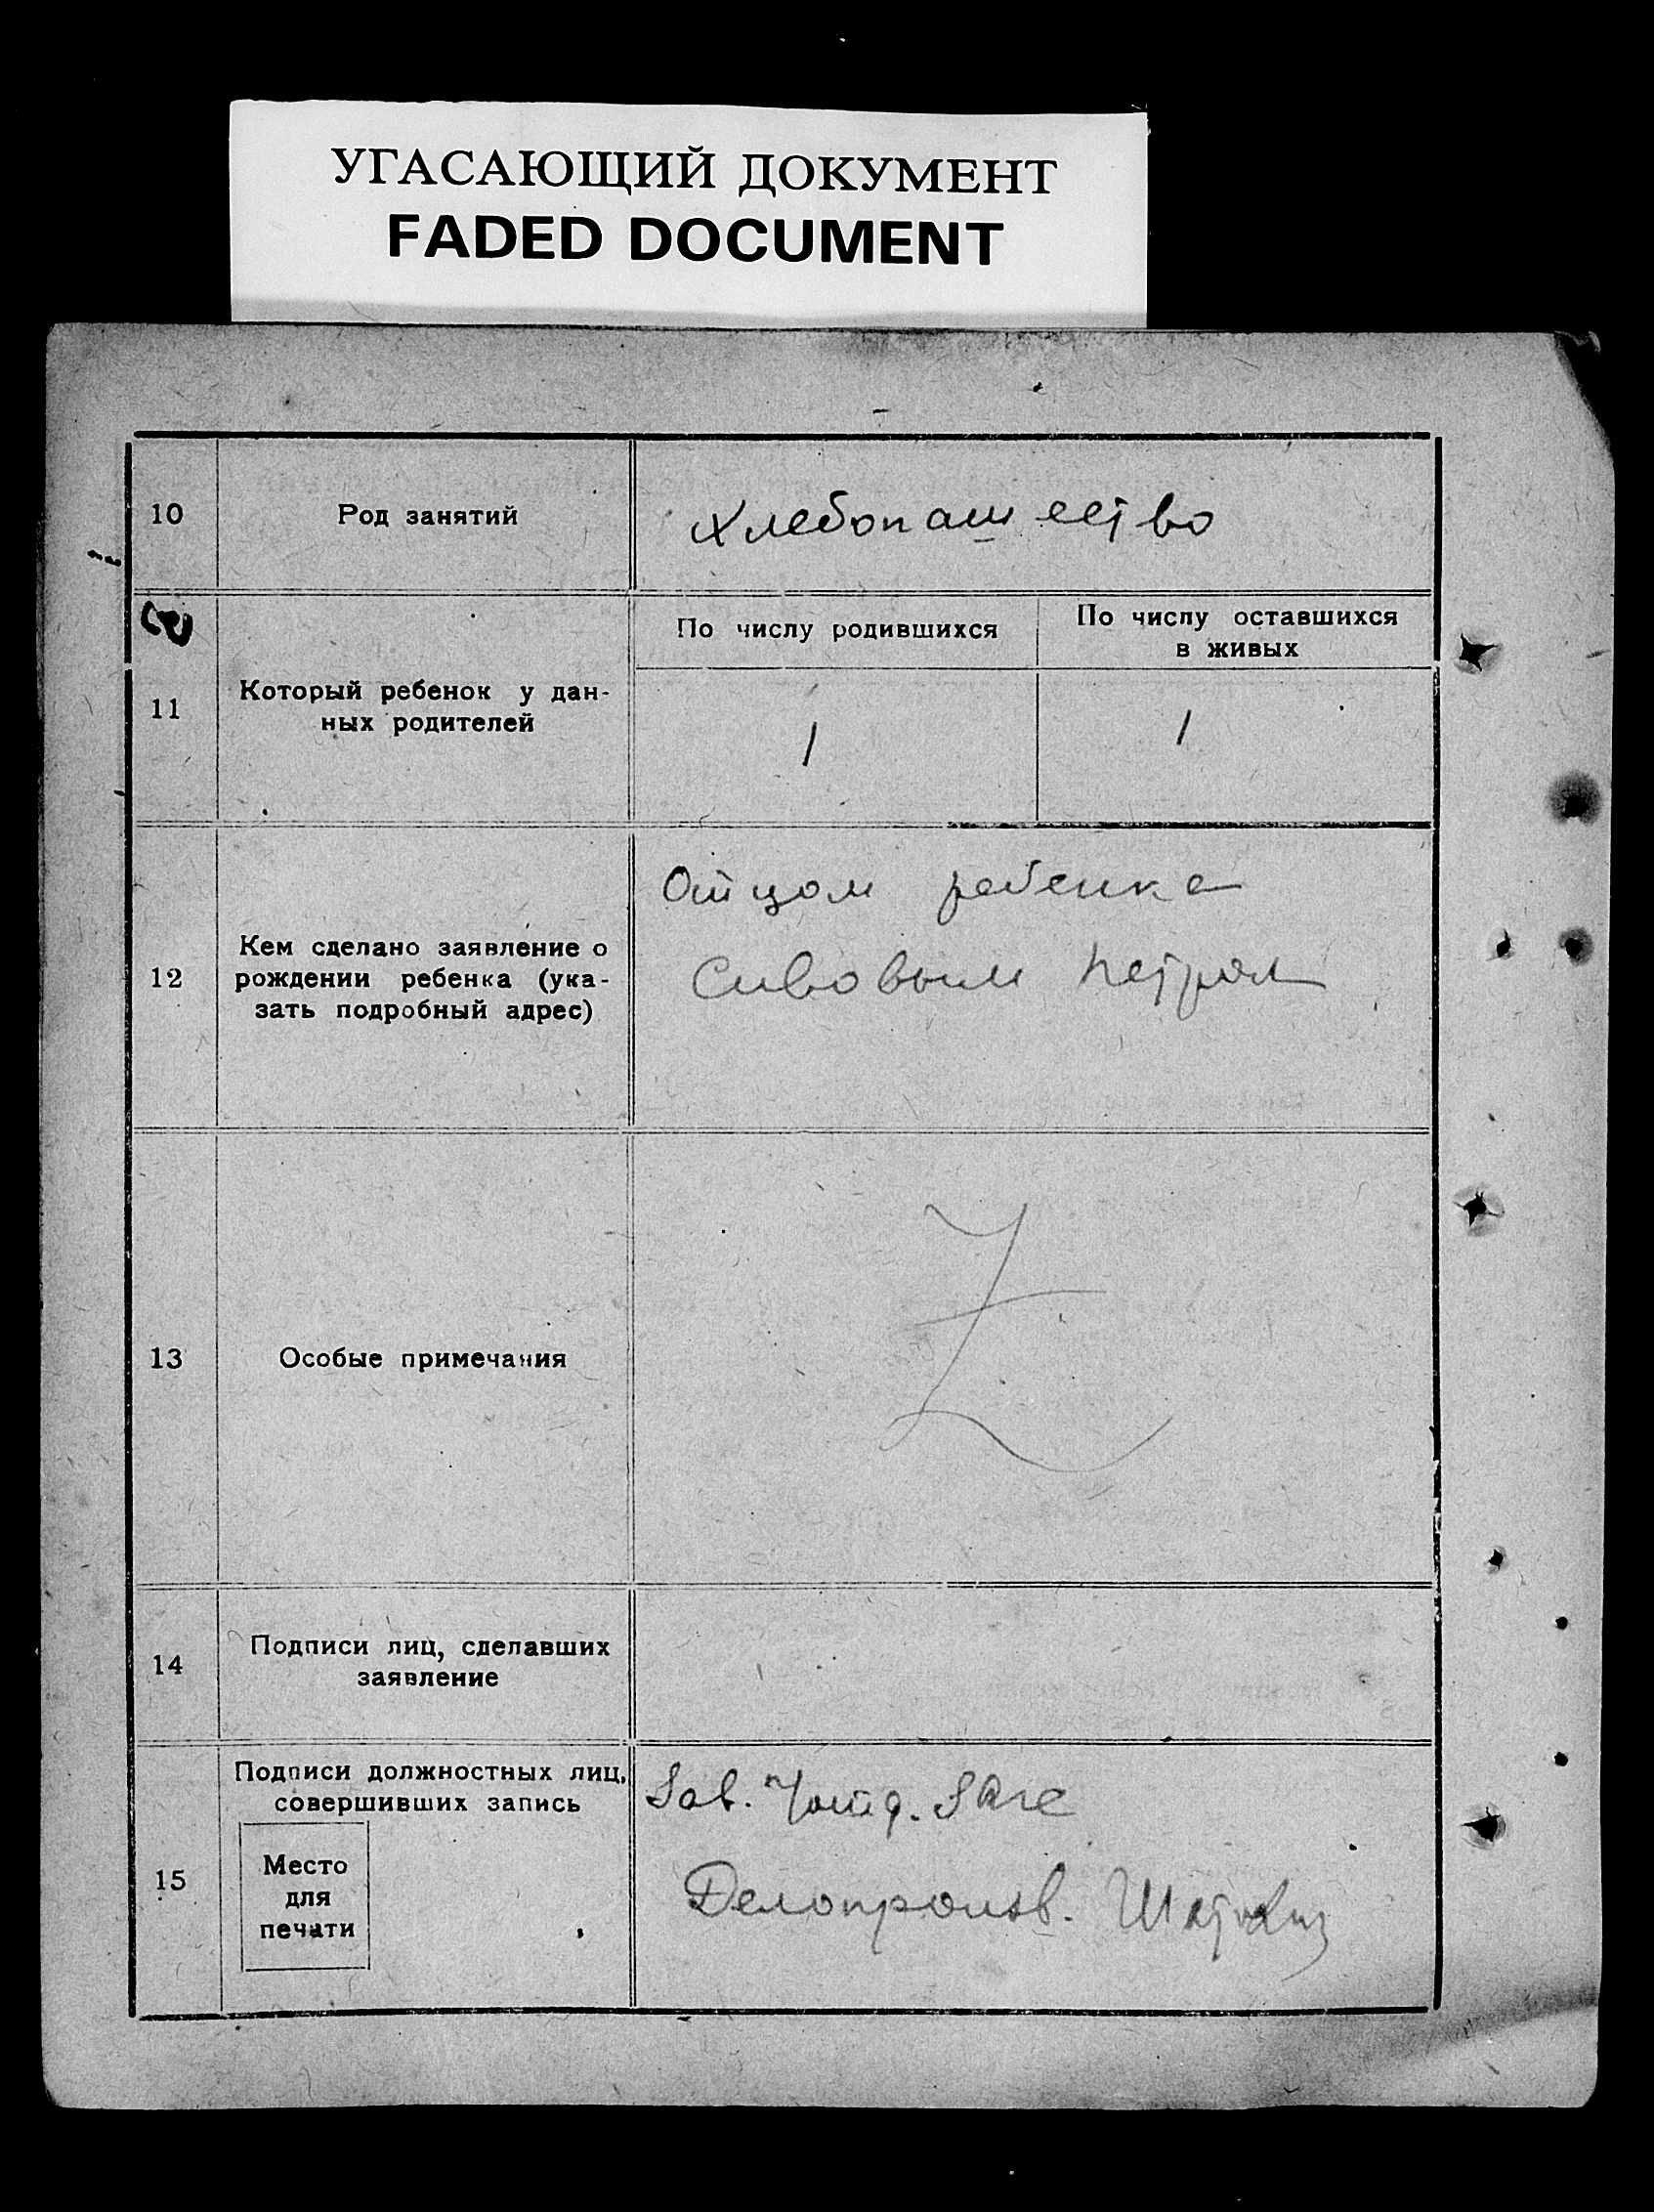 УГАСАЮЩИЙ ДОКУМЕНТ
FADED DOCUMENT
10
Род занятий
Хлебопашество
11
Который ребенок у дан-
ных родителей
По числу родившихся
По числу оставшихся
в живых
1
1
12
Кем сделано заявление о
рождении ребенка (ука-
зать подробный адрес)
Отцом ребенка
Сивовым Петром
13
Особые примечания
Z
14
Подписи лиц, сделавших
заявление
15
Подписи должностных лиц,
совершивших запись
Место
для
печати
Зав.
Делопроизв.